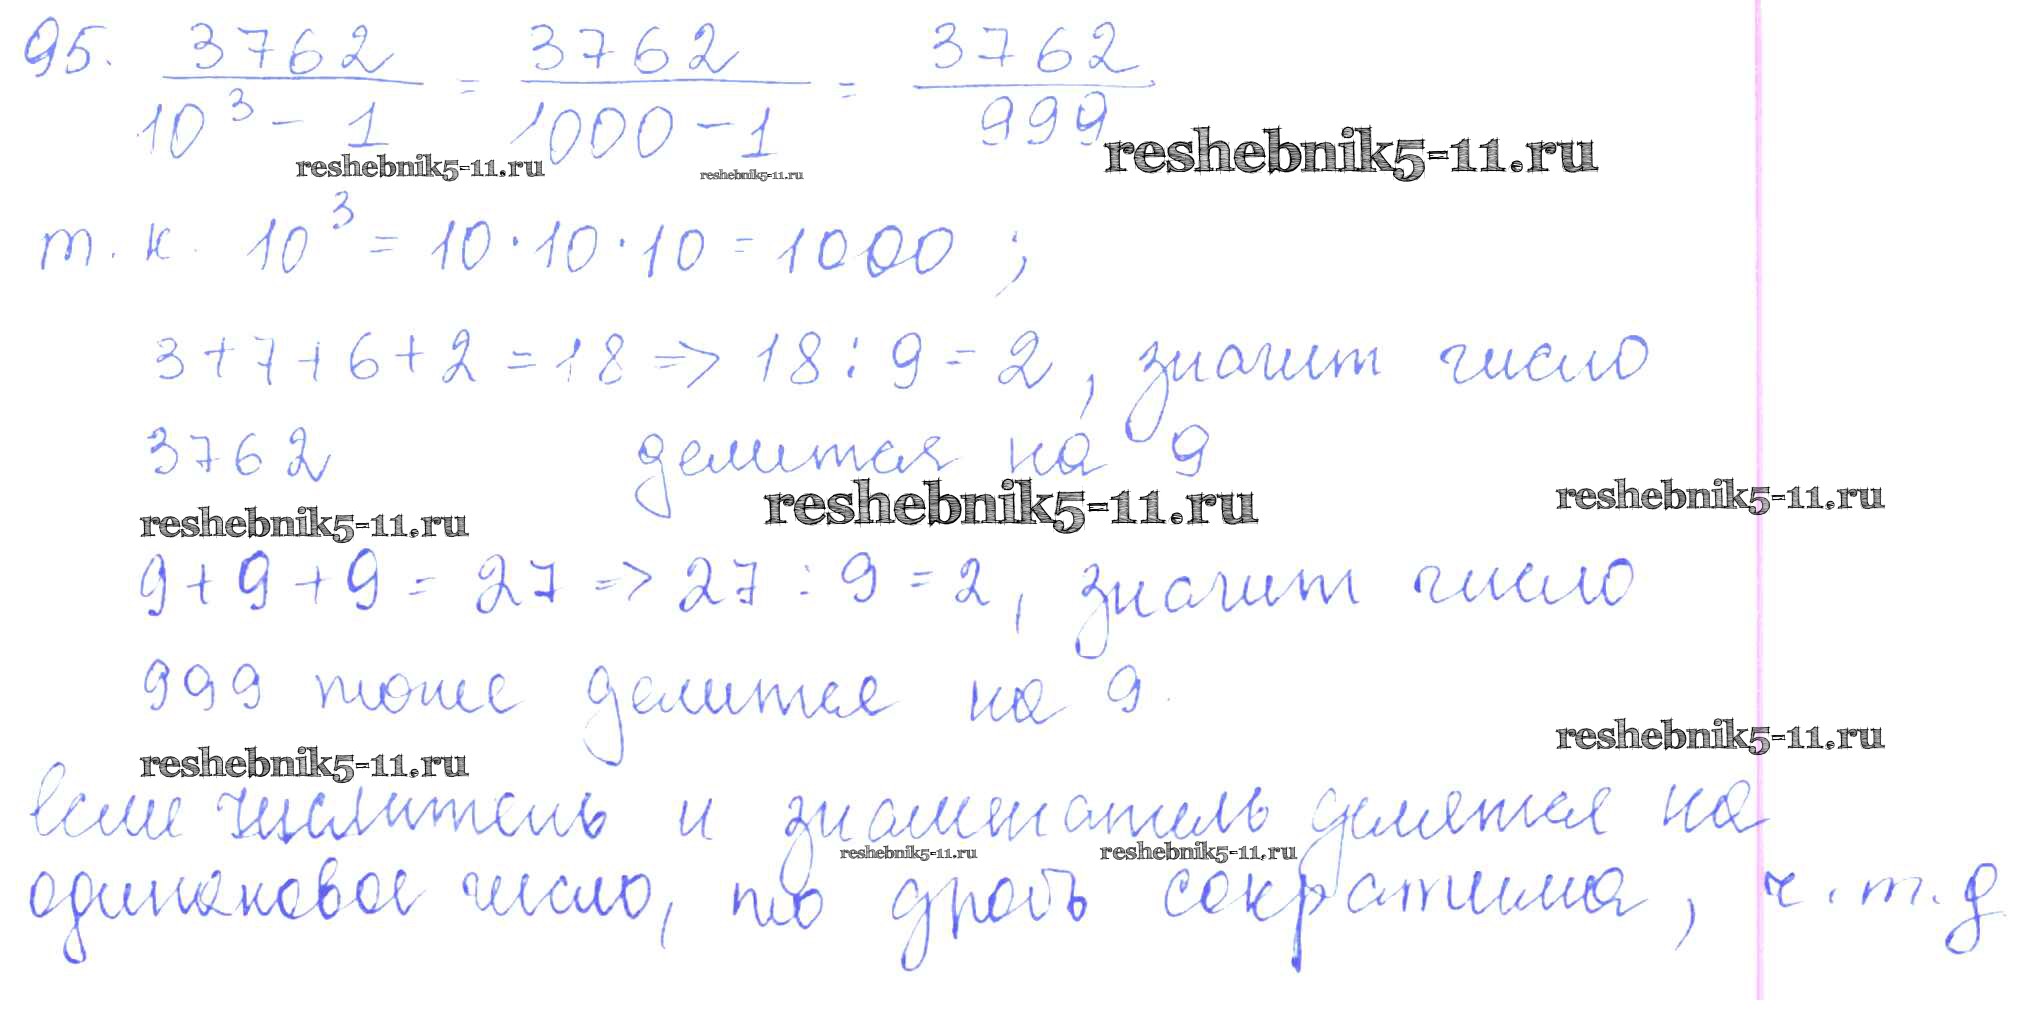 95. 3762 / 10³ - 1 = 3762 / 1000 - 1 = 3762 / 999
reshebnik5-11.ru reshebnik5-11.ru reshebnik5-11.ru
т. к. 10³ = 10 · 10 · 10 = 1000 ;
3 + 7 + 6 + 2 = 18 => 18 : 9 = 2, значит число
3762 делится на 9
reshebnik5-11.ru reshebnik5-11.ru reshebnik5-11.ru
9 + 9 + 9 = 27 => 27 : 9 = 2, значит число
999 тоже делится на 9.
reshebnik5-11.ru reshebnik5-11.ru
если числитель и знаменатель делятся на
reshebnik5-11.ru reshebnik5-11.ru
одинаковое число, то дробь сократима, ч. т. д